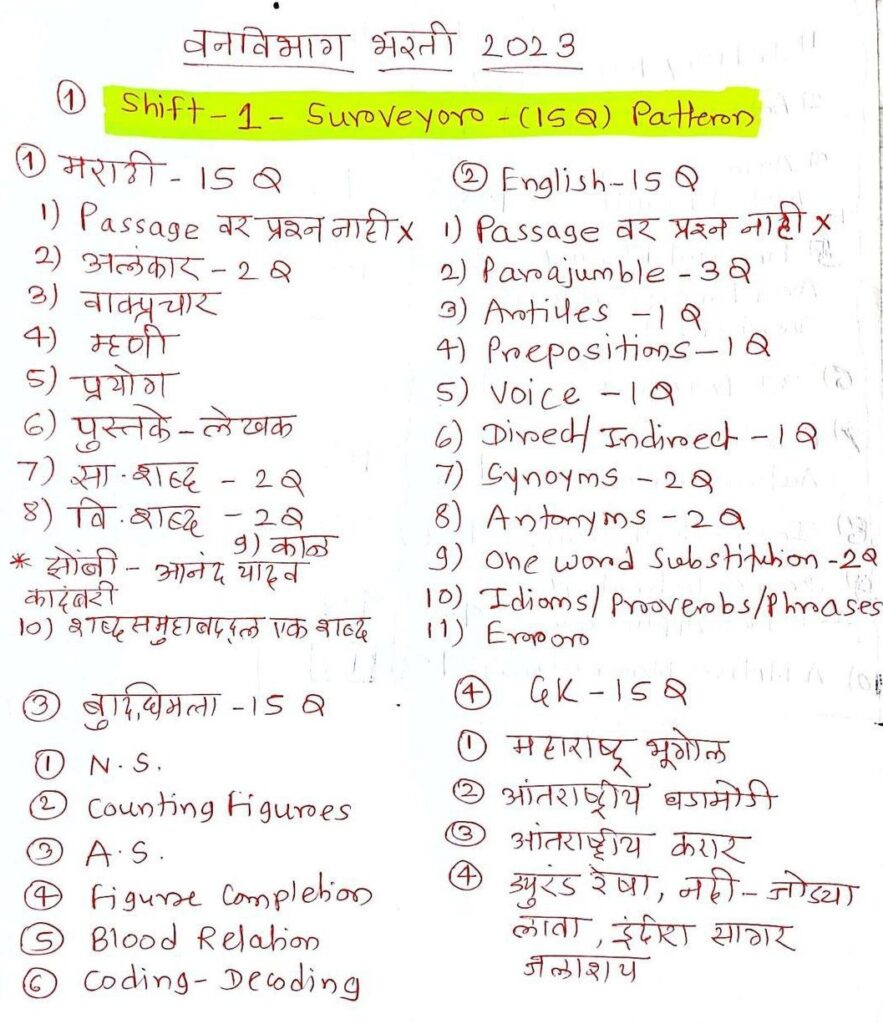 वनविभाग भरती 2023
① Shift-1- Surveyor-(15Q) Pattern
① मराठी - 15 Q
1) Passage वर प्रश्न नाही x
2) अलंकार - 2 Q
3) वाक्प्रचार
4) म्हणी
5) प्रयोग
6) पुस्तके - लेखक
7) सा. शब्द - 2Q
8) वि. शब्द - 2Q
9) काळ
* झोंबी - आनंद यादव
कादंबरी
10) शब्द समुहाबद्दल एक शब्द
② English-15 Q
1) Passage वर प्रश्न नाही x
2) Parajumble - 3Q
3) Articles - 1Q
4) Prepositions - 1Q
5) Voice - 1Q
6) Direct/Indirect - 1Q
7) Synoyms - 2Q
8) Antonyms - 2Q
9) One word Substitution - 2Q
10) Idioms/Proverbs/Phrases
11) Error
③ बुद्धिमत्ता - 15 Q
① N.S.
② Counting Figures
③ A.S.
④ Figure Completion
⑤ Blood Relation
⑥ Coding-Decoding
④ GK-15 Q
① महाराष्ट्र भूगोल
② आंतराष्ट्रीय घडामोडी
③ आंतराष्ट्रीय करार
④ ड्युरंड रेषा, नदी - जोड्या
लावा, इंदीरा सागर
जलाशय